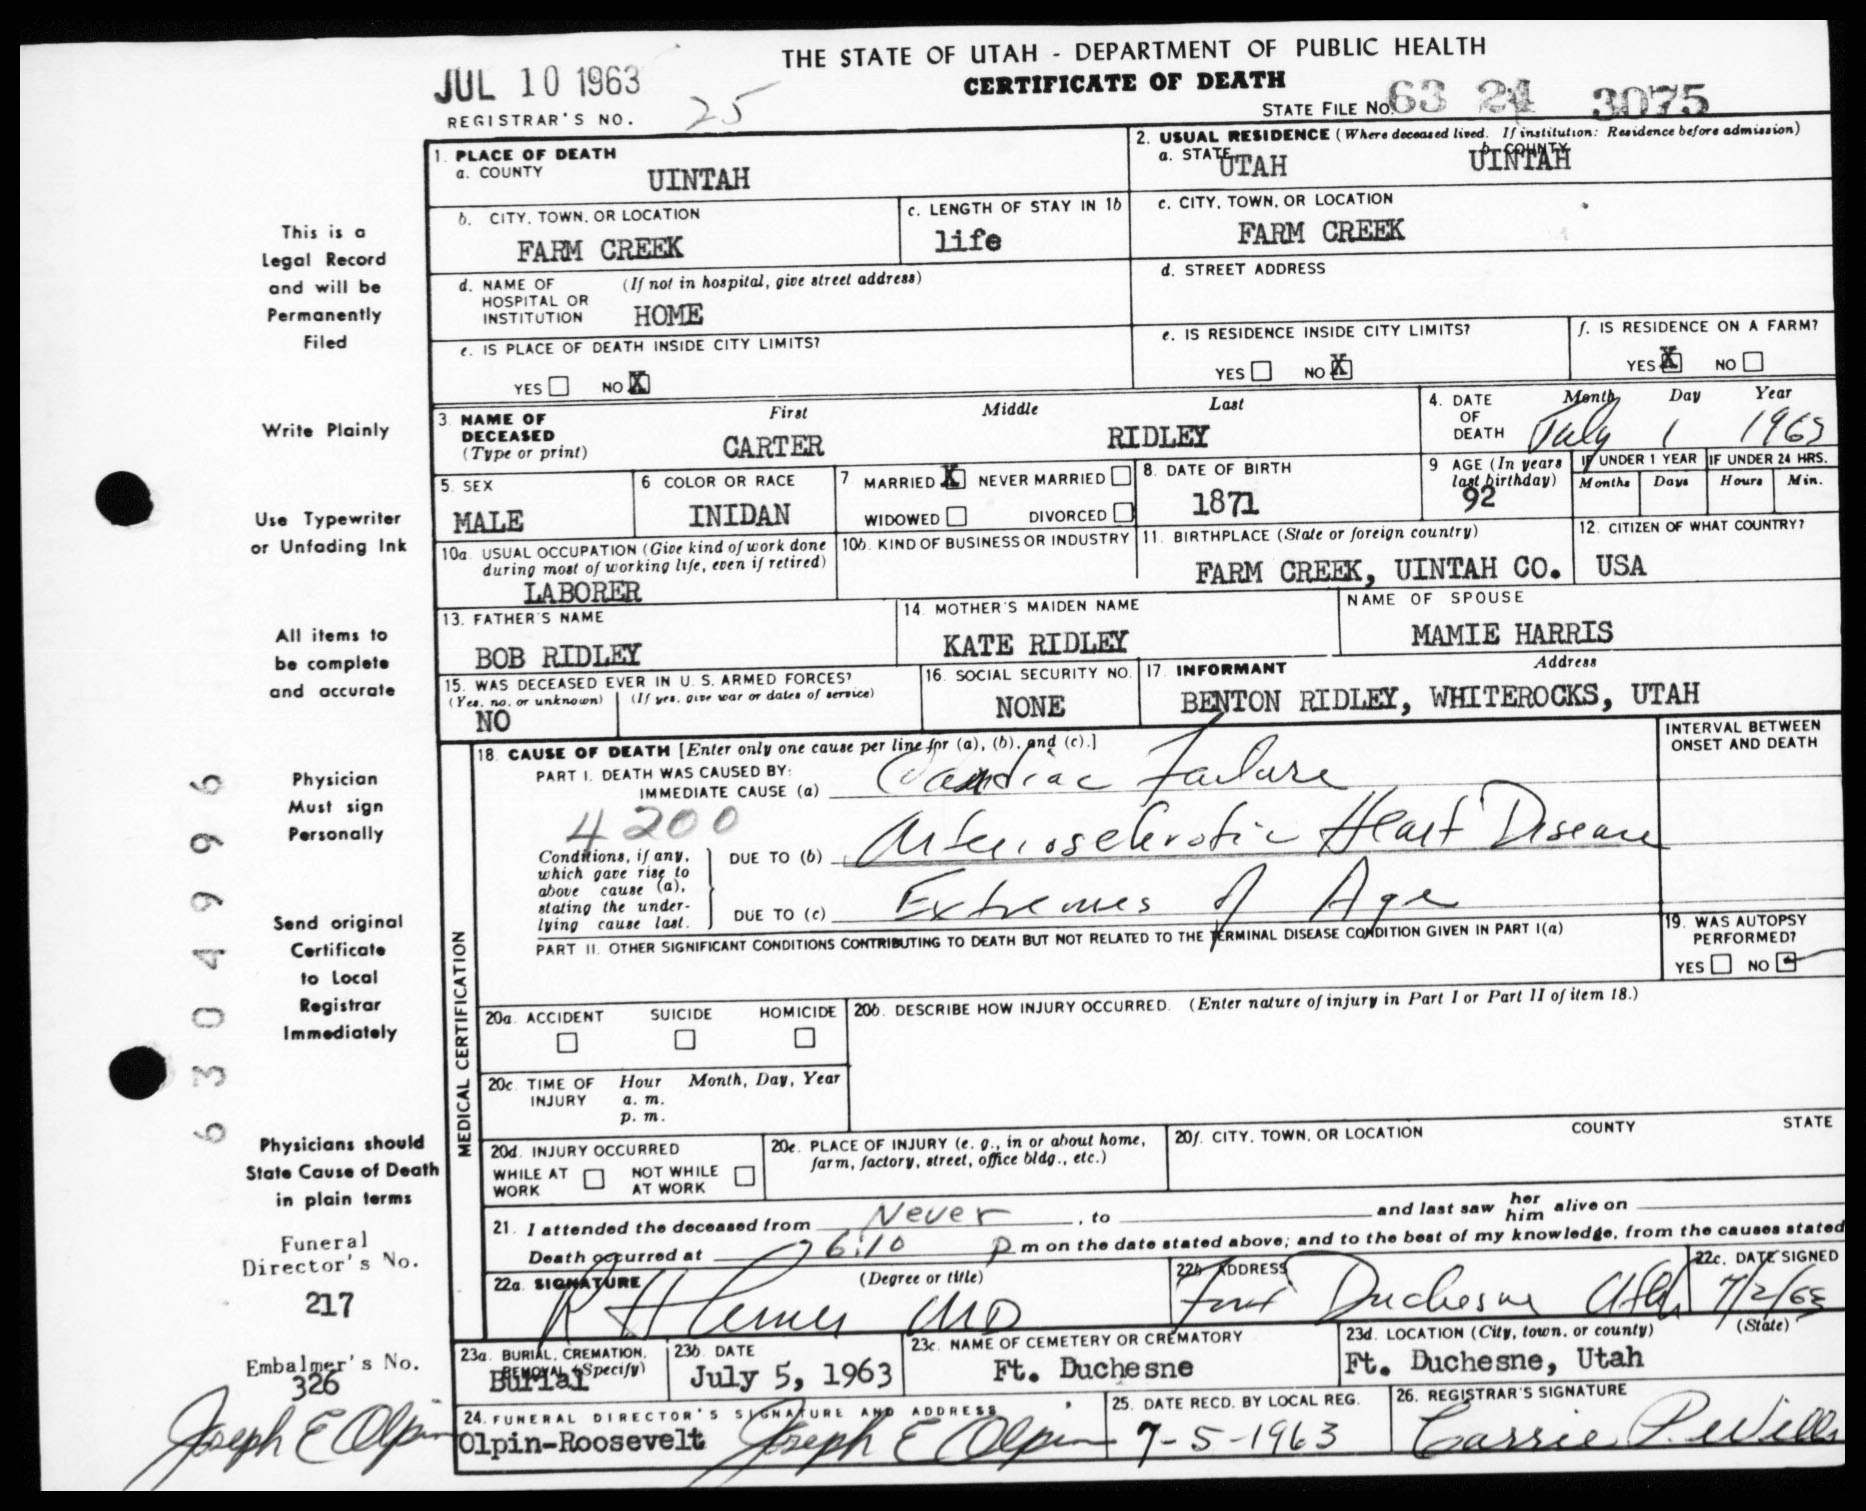 THE STATE OF UTAH - DEPARTMENT OF PUBLIC HEALTH
CERTIFICATE OF DEATH
JUL 10 1963
REGISTRAR'S NO. 25
STATE FILE NO. 63 24 3075
1. PLACE OF DEATH
a. COUNTY UINTAH
2. USUAL RESIDENCE (Where deceased lived. If institution: Residence before admission)
a. STATE UTAH b. COUNTY UINTAH
b. CITY, TOWN, OR LOCATION FARM CREEK
c. LENGTH OF STAY IN 1b life
c. CITY, TOWN, OR LOCATION FARM CREEK
d. NAME OF HOSPITAL OR INSTITUTION (If not in hospital, give street address) HOME
d. STREET ADDRESS
e. IS PLACE OF DEATH INSIDE CITY LIMITS? YES NO X
e. IS RESIDENCE INSIDE CITY LIMITS? YES NO X
f. IS RESIDENCE ON A FARM? YES X NO
3. NAME OF DECEASED (Type or print) First Middle Last
CARTER RIDLEY
4. DATE OF DEATH Month Day Year
July 1 1963
5. SEX MALE
6 COLOR OR RACE INIDAN
7 MARRIED X NEVER MARRIED WIDOWED DIVORCED
8. DATE OF BIRTH 1871
9 AGE (In years last birthday) 92
IF UNDER 1 YEAR Months Days
IF UNDER 24 HRS. Hours Min.
10a. USUAL OCCUPATION (Give kind of work done during most of working life, even if retired) LABORER
10b. KIND OF BUSINESS OR INDUSTRY
11. BIRTHPLACE (State or foreign country) FARM CREEK, UINTAH CO.
12. CITIZEN OF WHAT COUNTRY? USA
13. FATHER'S NAME BOB RIDLEY
14. MOTHER'S MAIDEN NAME KATE RIDLEY
NAME OF SPOUSE MAMIE HARRIS
15. WAS DECEASED EVER IN U. S. ARMED FORCES? (Yes, no, or unknown) (If yes, give war or dates of service) NO
16. SOCIAL SECURITY NO. NONE
17. INFORMANT Address
BENTON RIDLEY, WHITEROCKS, UTAH
MEDICAL CERTIFICATION
18. CAUSE OF DEATH [Enter only one cause per line for (a), (b), and (c).]
INTERVAL BETWEEN ONSET AND DEATH
PART I. DEATH WAS CAUSED BY:
IMMEDIATE CAUSE (a) Cardiac Failure
4200
Conditions, if any, which gave rise to above cause (a), stating the underlying cause last.
DUE TO (b) Arteriosclerotic Heart Disease
DUE TO (c) Extremes of Age
PART II. OTHER SIGNIFICANT CONDITIONS CONTRIBUTING TO DEATH BUT NOT RELATED TO THE TERMINAL DISEASE CONDITION GIVEN IN PART I(a)
19. WAS AUTOPSY PERFORMED? YES NO
20a. ACCIDENT SUICIDE HOMICIDE
20b. DESCRIBE HOW INJURY OCCURRED. (Enter nature of injury in Part I or Part II of item 18.)
20c. TIME OF INJURY Hour Month, Day, Year
a. m.
p. m.
20d. INJURY OCCURRED
WHILE AT WORK NOT WHILE AT WORK
20e. PLACE OF INJURY (e. g., in or about home, farm, factory, street, office bldg., etc.)
20f. CITY, TOWN, OR LOCATION COUNTY STATE
21. I attended the deceased from Never , to and last saw her him alive on
Death occurred at 6:10 p m on the date stated above; and to the best of my knowledge, from the causes stated
22a. SIGNATURE (Degree or title) MD
22b ADDRESS Fort Duchesne Utah
22c. DATE SIGNED 7/2/63
23a. BURIAL, CREMATION, REMOVAL (Specify) Burial
23b. DATE July 5, 1963
23c. NAME OF CEMETERY OR CREMATORY Ft. Duchesne
23d. LOCATION (City, town, or county) (State) Ft. Duchesne, Utah
24. FUNERAL DIRECTOR'S SIGNATURE AND ADDRESS
Olpin-Roosevelt Joseph E Olpin
25. DATE RECD. BY LOCAL REG. 7-5-1963
26. REGISTRAR'S SIGNATURE Carrie P. Wills
This is a
Legal Record
and will be
Permanently
Filed
Write Plainly
Use Typewriter
or Unfading Ink
All items to
be complete
and accurate
Physician
Must sign
Personally
Send original
Certificate
to Local
Registrar
Immediately
Physicians should
State Cause of Death
in plain terms
Funeral
Director's No.
217
Embalmer's No.
326
Joseph E Olpin
6304996